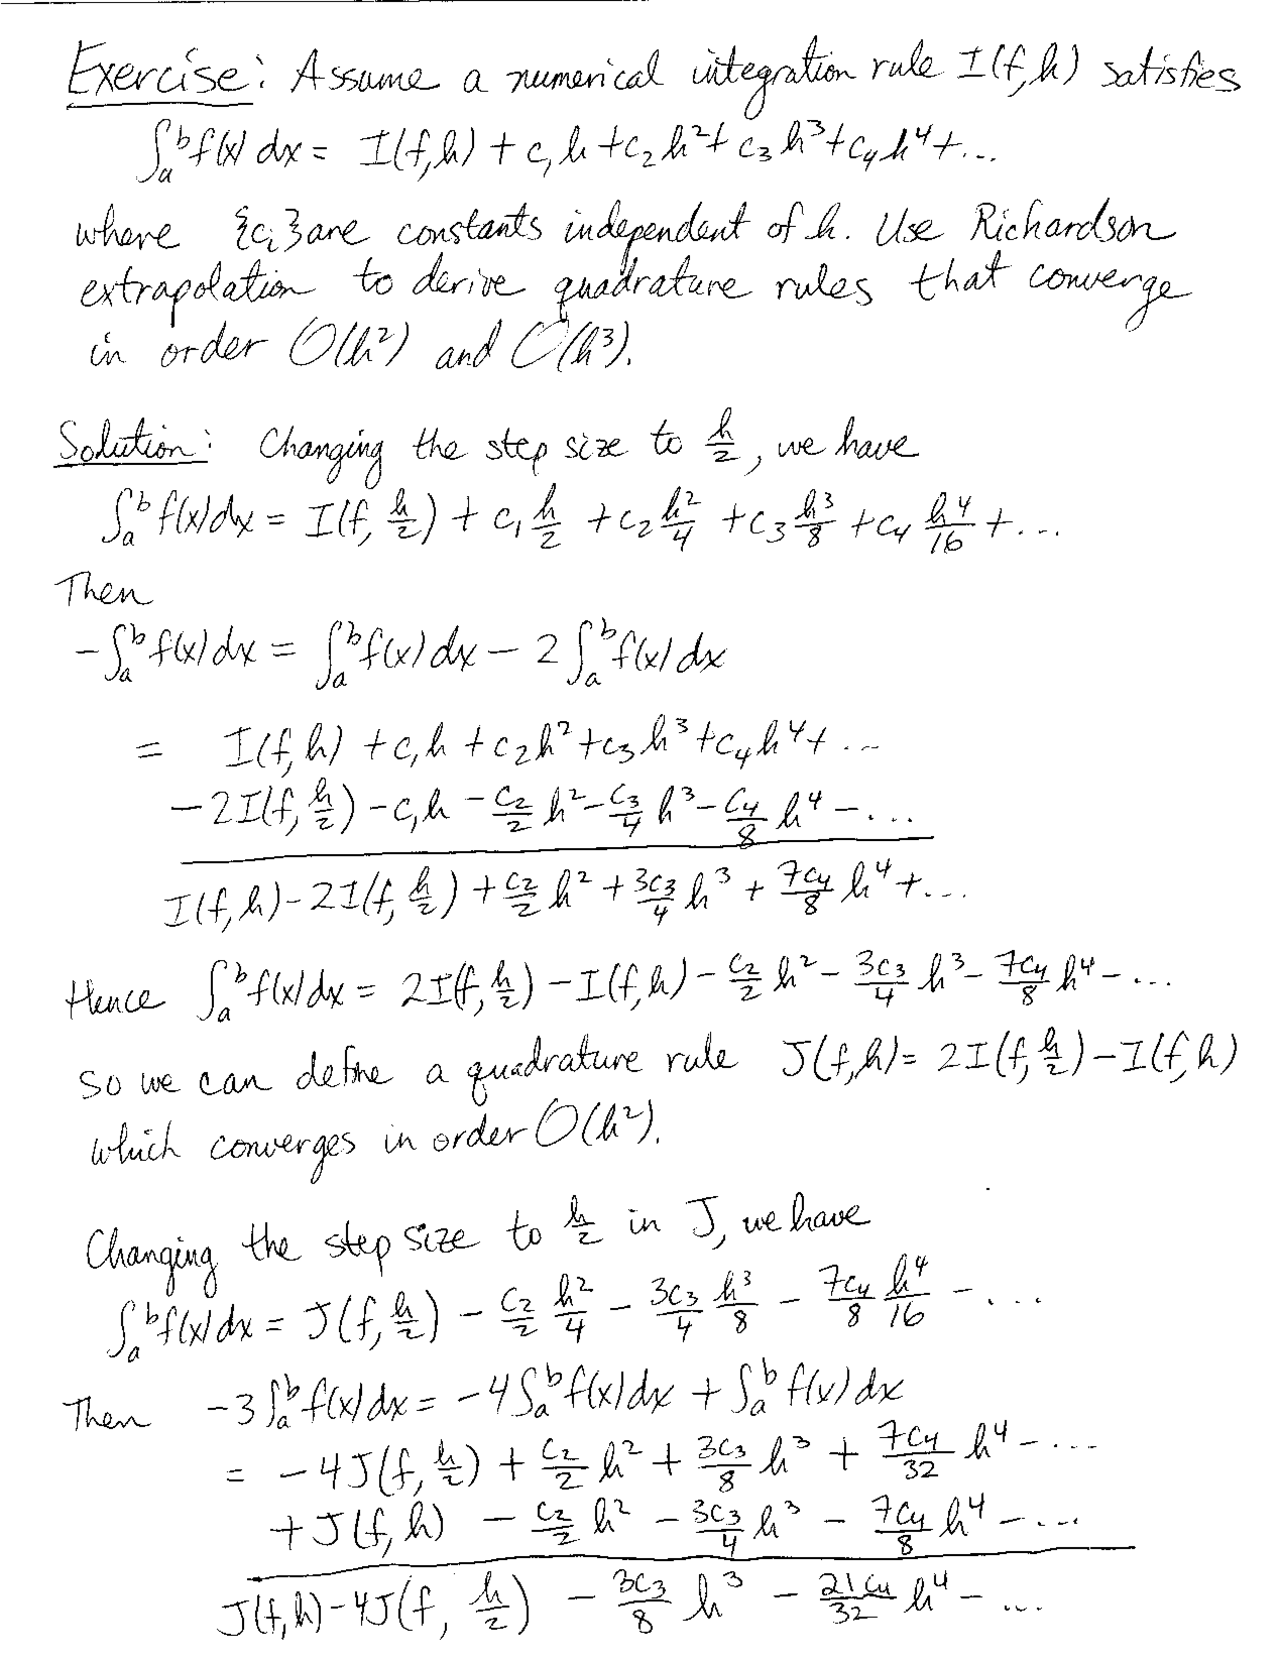 Exercise: Assume a numerical integration rule I(f,h) satisfies
∫_a^b f(x) dx = I(f,h) + c₁h + c₂h² + c₃h³ + c₄h⁴ + ...
where {cᵢ} are constants independent of h. Use Richardson
extrapolation to derive quadrature rules that converge
in order O(h²) and O(h³).
Solution: Changing the step size to h/2, we have
∫_a^b f(x)dx = I(f, h/2) + c₁ h/2 + c₂ h²/4 + c₃ h³/8 + c₄ h⁴/16 + ...
Then
-∫_a^b f(x)dx = ∫_a^b f(x)dx - 2∫_a^b f(x)dx
= I(f,h) + c₁h + c₂h² + c₃h³ + c₄h⁴ + ...
-2I(f, h/2) - c₁h - c₂/2 h² - c₃/4 h³ - c₄/8 h⁴ - ...
I(f,h) - 2I(f, h/2) + c₂/2 h² + 3c₃/4 h³ + 7c₄/8 h⁴ + ...
Hence ∫_a^b f(x)dx = 2I(f, h/2) - I(f,h) - c₂/2 h² - 3c₃/4 h³ - 7c₄/8 h⁴ - ...
so we can define a quadrature rule J(f,h) = 2I(f, h/2) - I(f,h)
which converges in order O(h²).
Changing the step size to h/2 in J, we have
∫_a^b f(x)dx = J(f, h/2) - c₂/2 h²/4 - 3c₃/4 h³/8 - 7c₄/8 h⁴/16 - ...
Then -3∫_a^b f(x)dx = -4∫_a^b f(x)dx + ∫_a^b f(x)dx
= -4J(f, h/2) + c₂/2 h² + 3c₃/8 h³ + 7c₄/32 h⁴ - ...
+ J(f,h) - c₂/2 h² - 3c₃/4 h³ - 7c₄/8 h⁴ - ...
J(f,h) - 4J(f, h/2) - 3c₃/8 h³ - 21c₄/32 h⁴ - ...